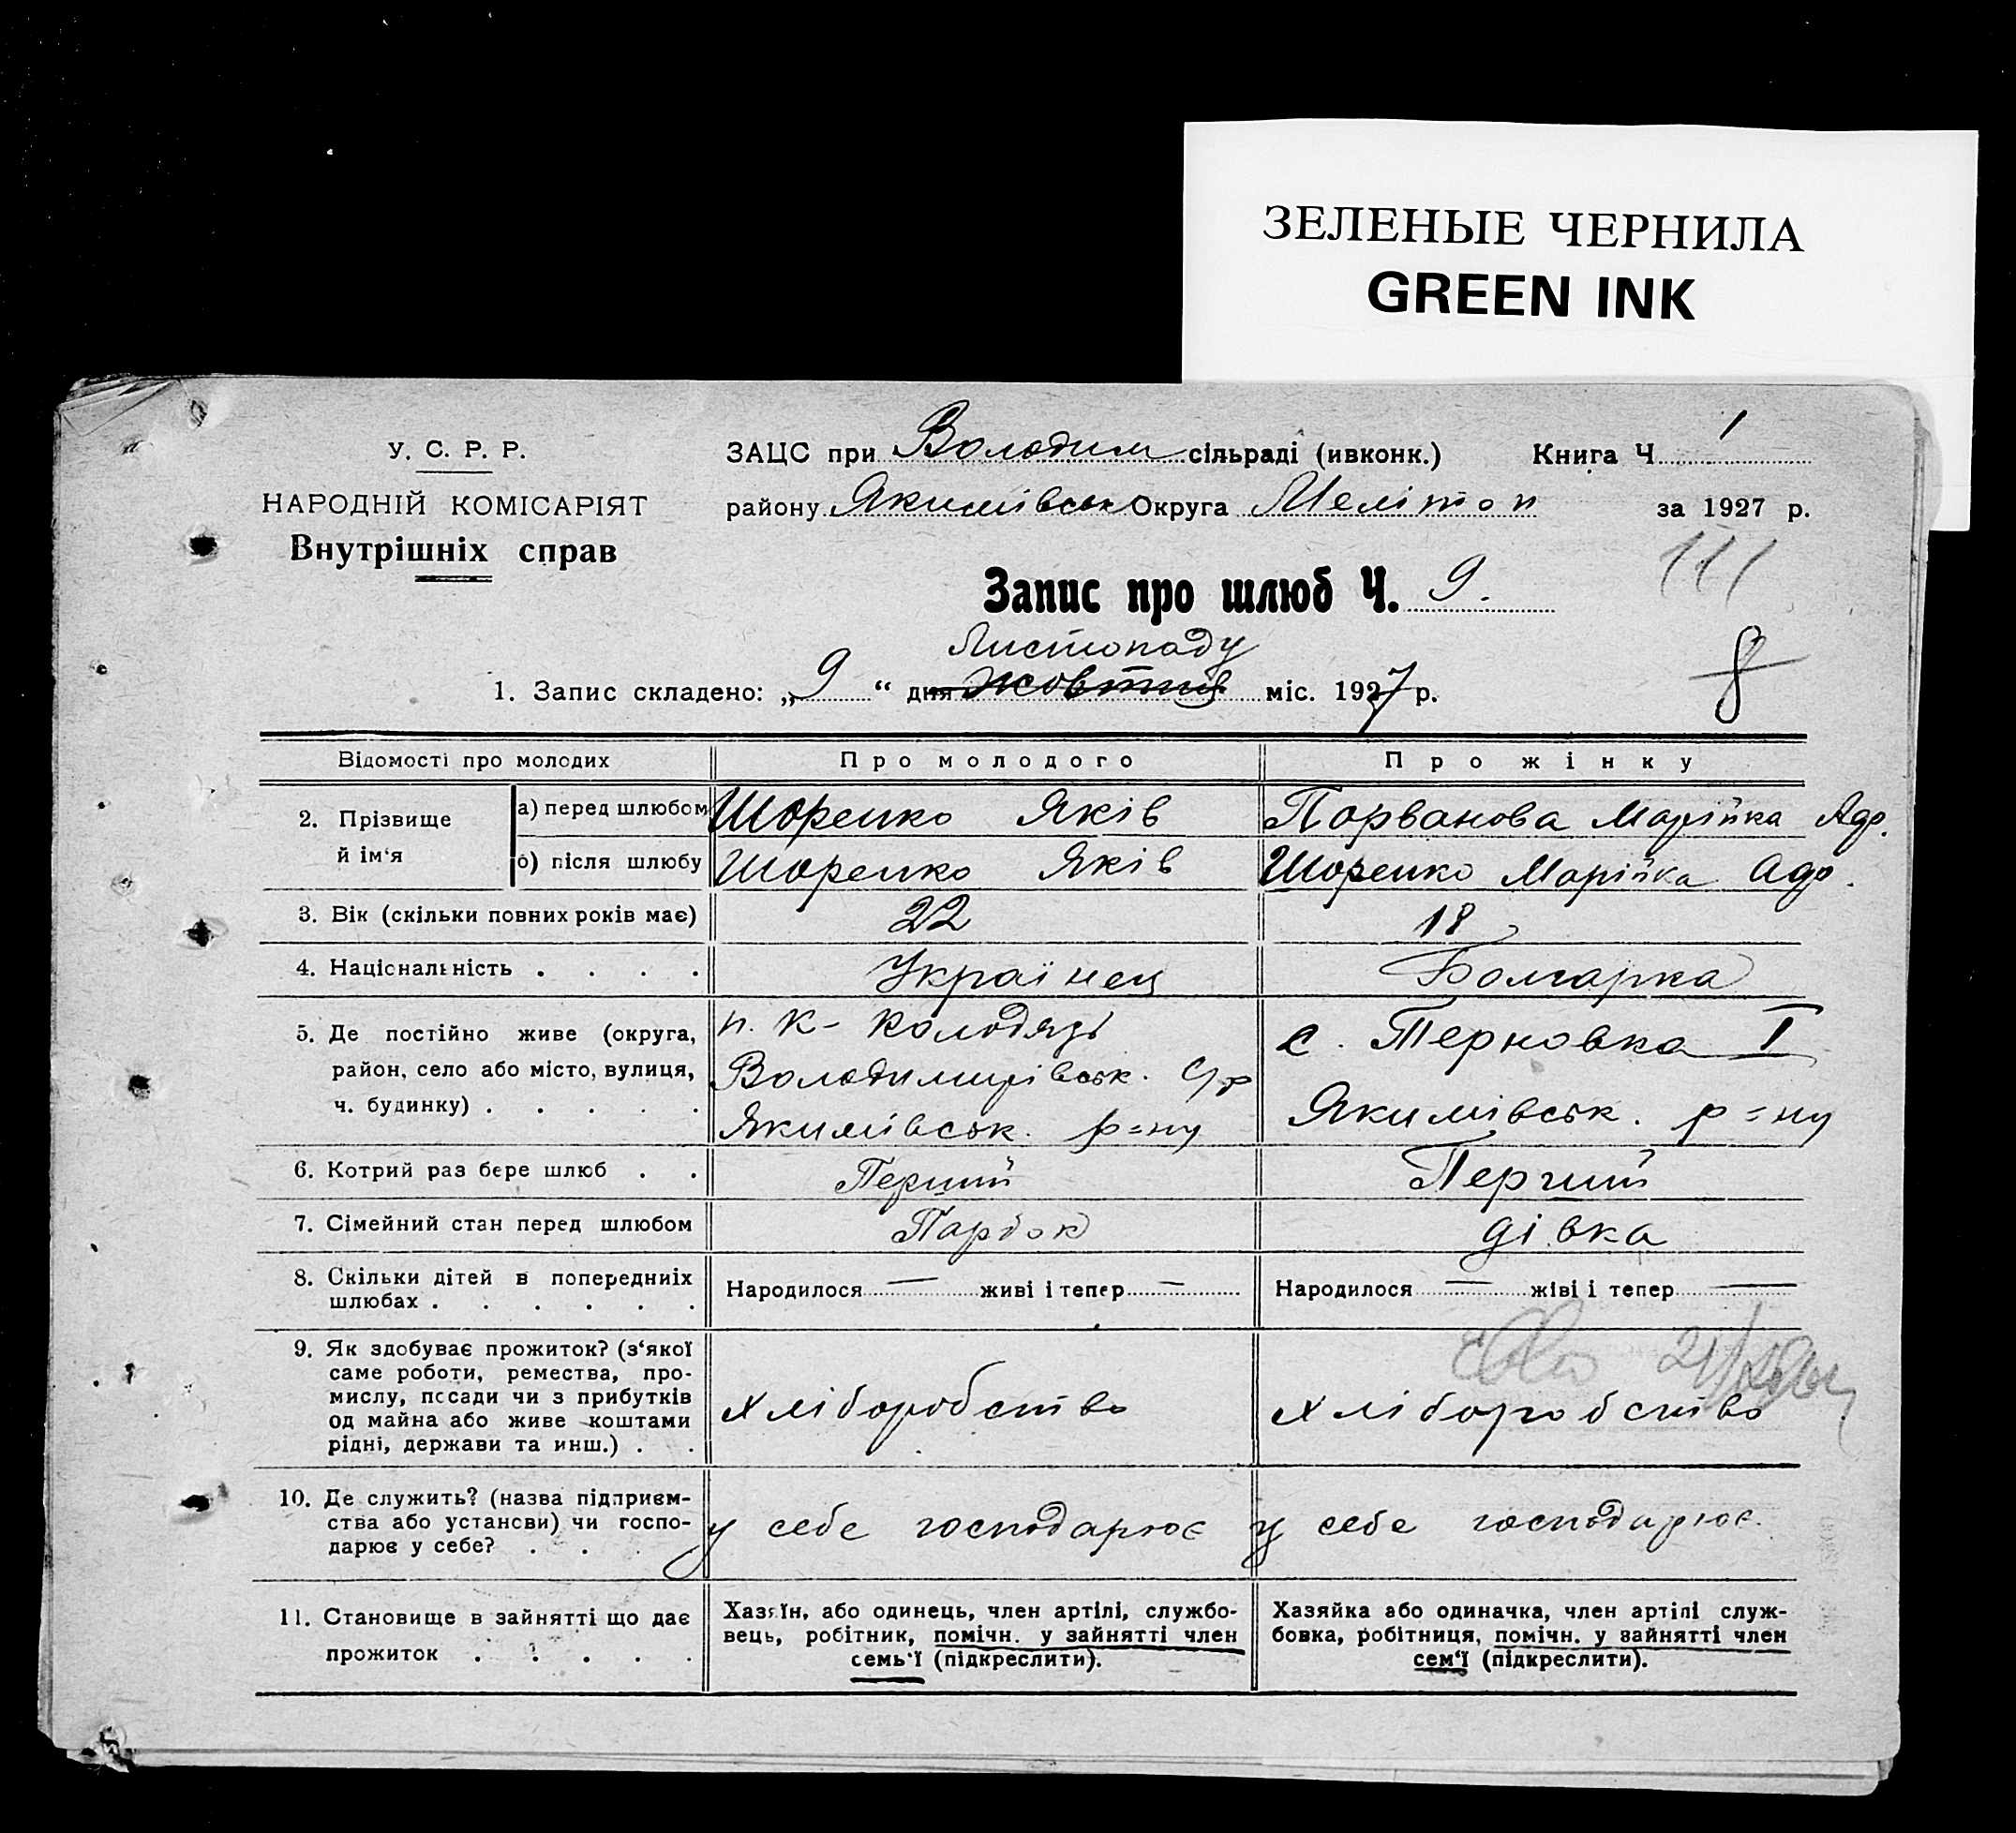 ЗЕЛЕНЫЕ ЧЕРНИЛА
GREEN INK
У. С. Р. Р.
НАРОДНІЙ КОМІСАРІЯТ
Внутрішніх справ
ЗАЦС при Володим сільраді (ивконк.) Книга Ч 1
району Якимівськ Округа Меліто п за 1927 р.
111
Запис про шлюб Ч. 9.
Листопаду
1. Запис складено: „ 9 “ дня Жовтня міс. 1927 р.
8
Відомості про молодих Про молодого Про жінку
2. Прізвище й ім‘я
а) перед шлюбом Шоренко Яків Порванова Марійка Адр.
б) після шлюбу Шоренко Яків Шоренко Марійка Адр.
3. Вік (скільки повних років має) 22 18
4. Національність . . . . Українец Болгарка
5. Де постійно живе (округа, район, село або місто, вулиця, ч. будинку) . . . . .
п. К- Колодязь
Володимирівськ. С/р
Якимівськ. р=ну
с. Терновка I
Якимівськ. р=ну
6. Котрий раз бере шлюб . . Перший Перший
7. Сімейний стан перед шлюбом Парбок дівка
8. Скільки дітей в попередниіх шлюбах . . . . . .
Народилося — живі і тепер — Народилося — жіві і тепер —
9. Як здобуває прожиток? (з‘якої
саме роботи, ремества, про-
мислу, посади чи з прибутків
од майна або живе коштами
рідні, держави та инш.) . .
хліборобство хліборобство
10. Де служить? (назва підприєм-
ства або установи) чи госпо-
дарює у себе? . . .
у себе господарює у себе господарює.
11. Становище в зайнятті що дає
прожиток . . . . .
Хазяїн, або одинець, член артілі, службо-
вець, робітник, помічн. у зайнятті член
семь‘ї (підкреслити).
Хазяйка або одиначка, член артілі служ-
бовка, робітниця, помічн. у зайнятті член
сем‘ї (підкреслити).